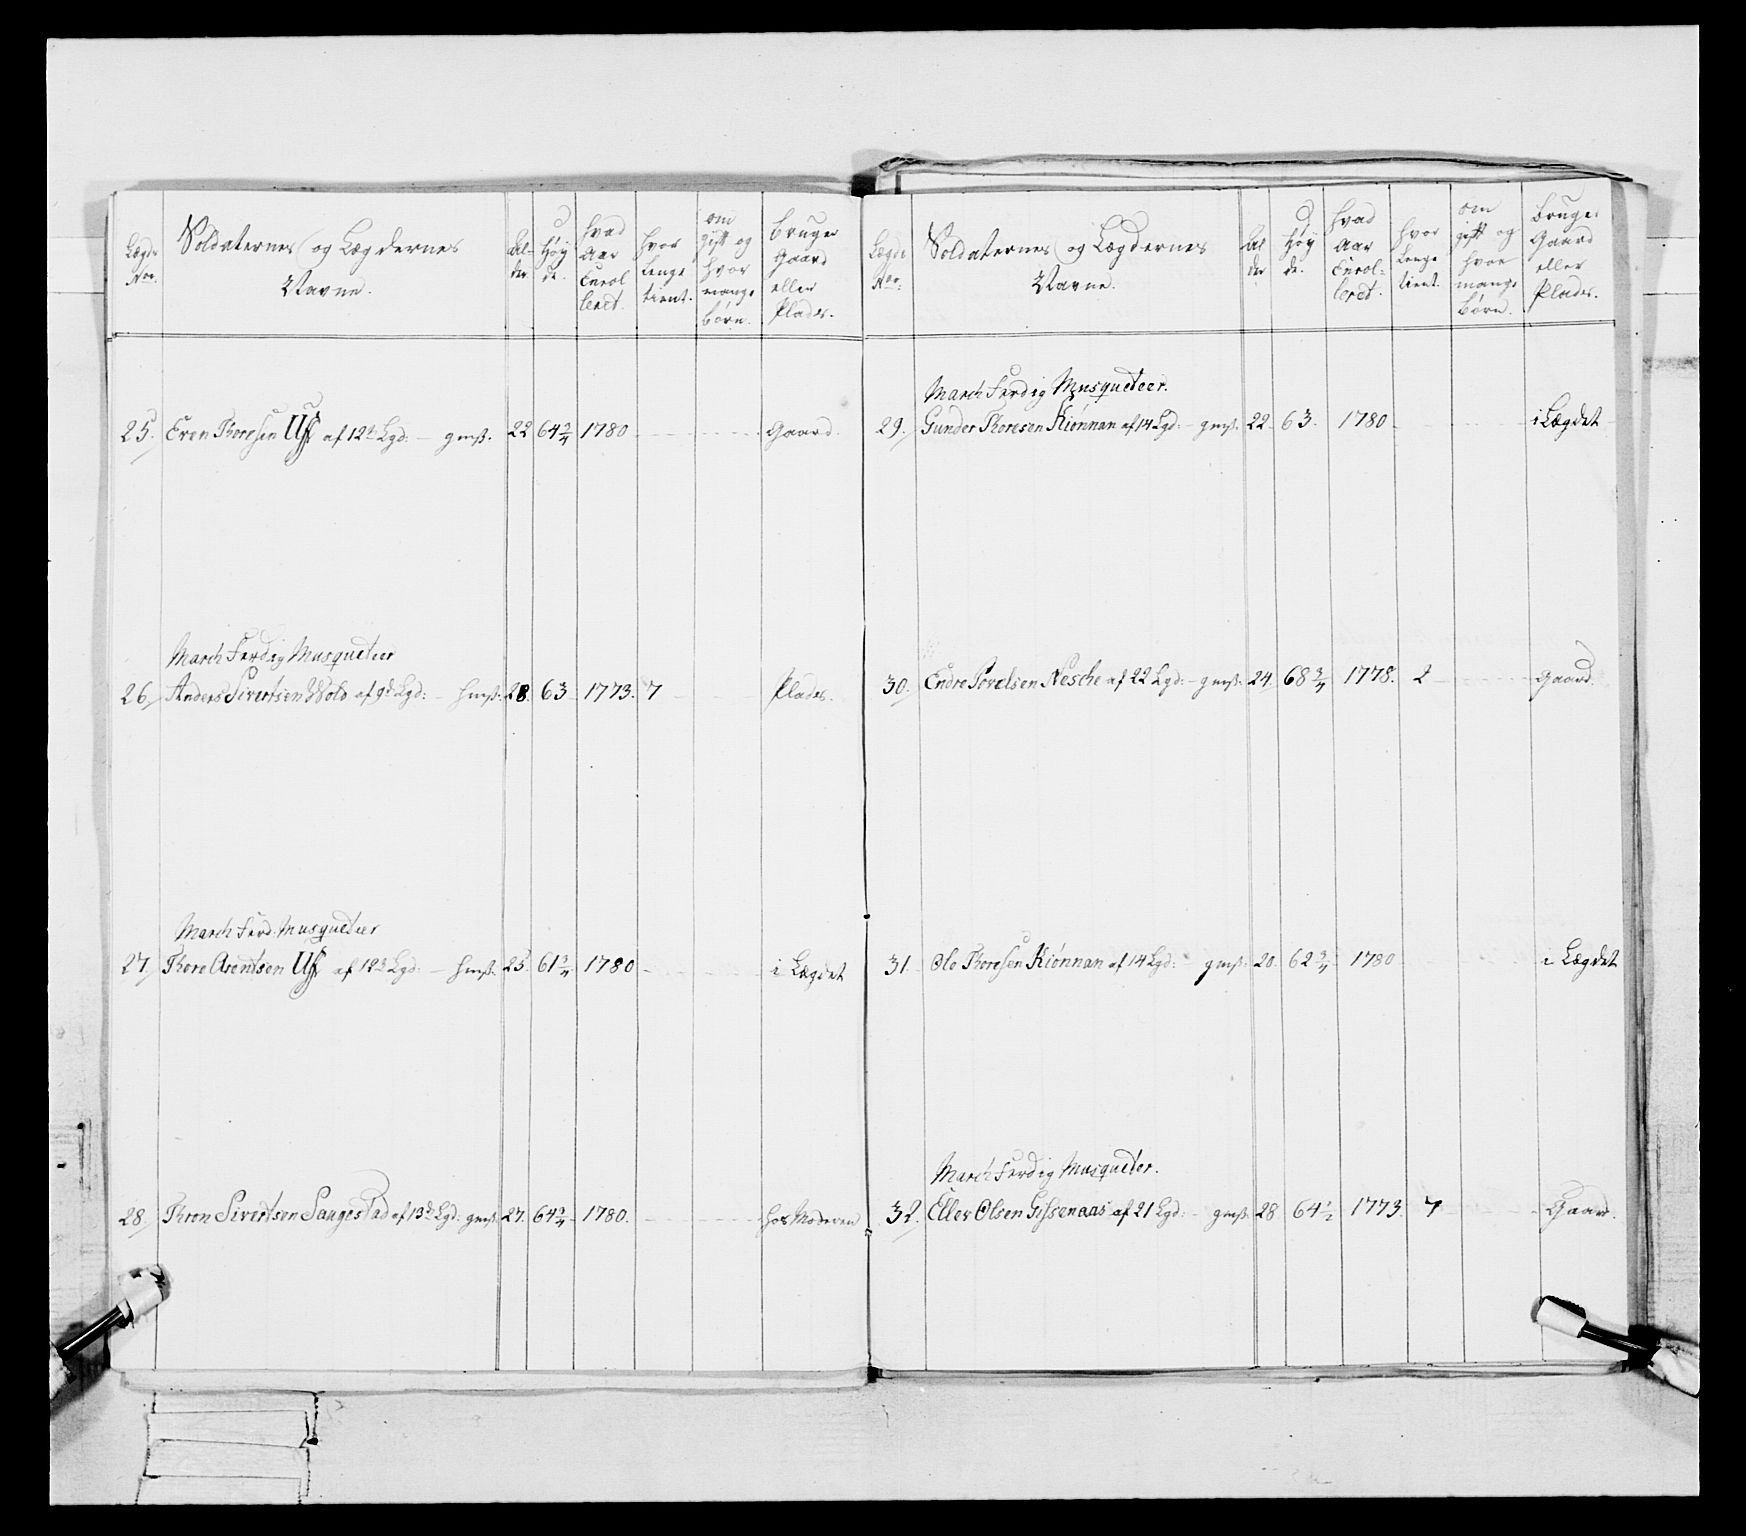 Lægds Nor:
Soldaternes og Lægdernes Navne.
Al- der.
Høy de.
hvad Aar Enrol leret.
hvor lenge tient.
om gift og hvor mange børn.
bruger Gaard eller Plads.
25. Even Thoresen Uf af 12te Lgd: — gmß. 22 64 3/4 1780 Gaard
March Ferdig Musqueteer
26. Anders Sivertsen Wold af 9de Lgd: — hmß. 28. 63 1773. 7 Plads.
March Ferd. Musqueteer
27. Thore Arentsen Uf af 12te Lgd: — hmß. 25 61 3/4 1780 i Lægdet
28. Thron Sivertsen Sangestad af 13de Lgd: gmß. 27. 64 3/4 1780. hos Moderen
Lægds Nor:
Soldaternes og Lægdernes Navne.
Al der
Høy de.
hvad Aar Enrol- leret.
hvor lenge tient.
om gift og hvor mange børn.
bruger Gaard eller Plads.
March Ferdig Musqueteer.
29. Gunder Thoresen Kiønnan af 14 Lgd: — gmß. 22 63. 1780 i Lægdet
30. Endre Povelsen Nesche af 22 Lgd: — gmß. 24. 68 3/4 1778. 2 Gaard.
31. Ole Thoresen Kiønnan af 14 Lgd: — gmß. 20. 62 3/4 1780 i Lægdet
March Ferdig Musqueter.
32. Eller Olsen Gissenaas af 21 Lgd: — gmß. 28 64 1/2 1773. 7 Gaard.